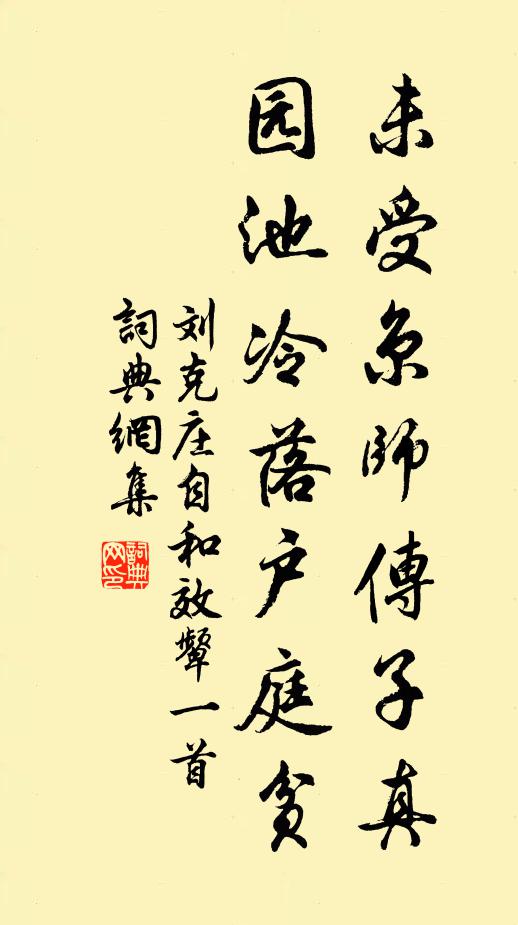 未受京師傳子真
园池冷落户庭貧
刘克庄自和效顰一首
詞典網集
詞典网印